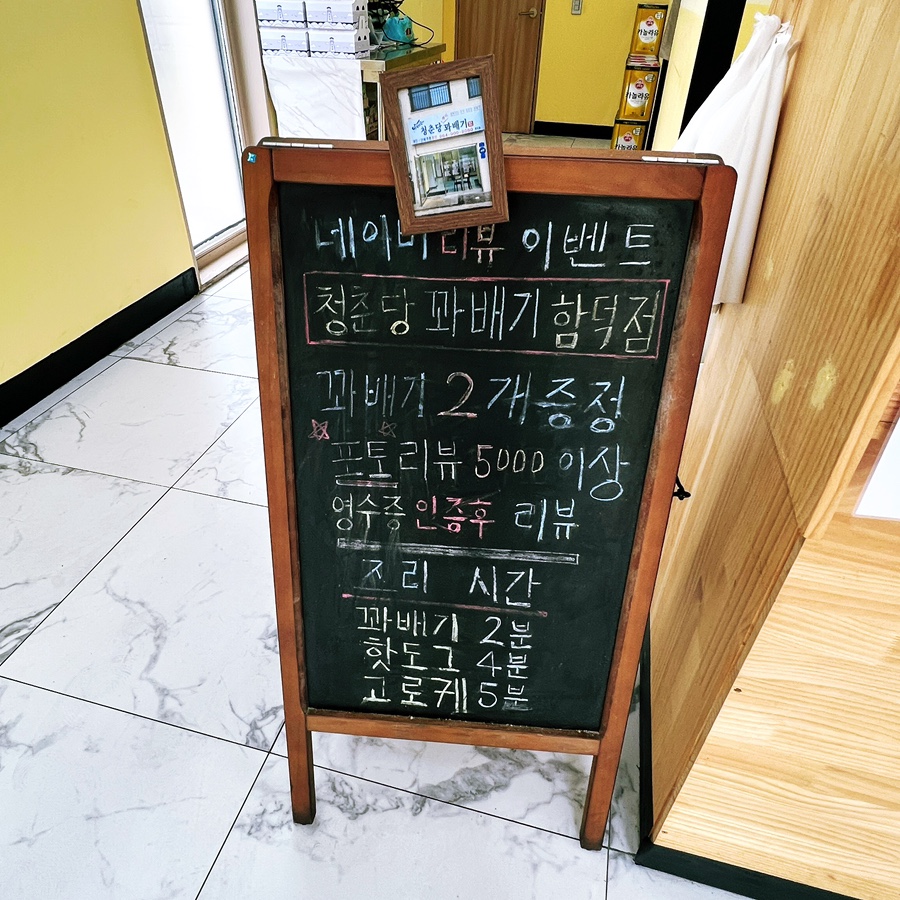 청춘당 꽈배기
카놀라유
카놀라유
카놀라유
네이버 리뷰 이벤트
청춘당 꽈배기 함덕점
꽈배기 2개 증정
포토리뷰 5000 이상
영수증 인증후 리뷰
조리 시간
꽈배기 2분
핫도그 4분
고로케 5분